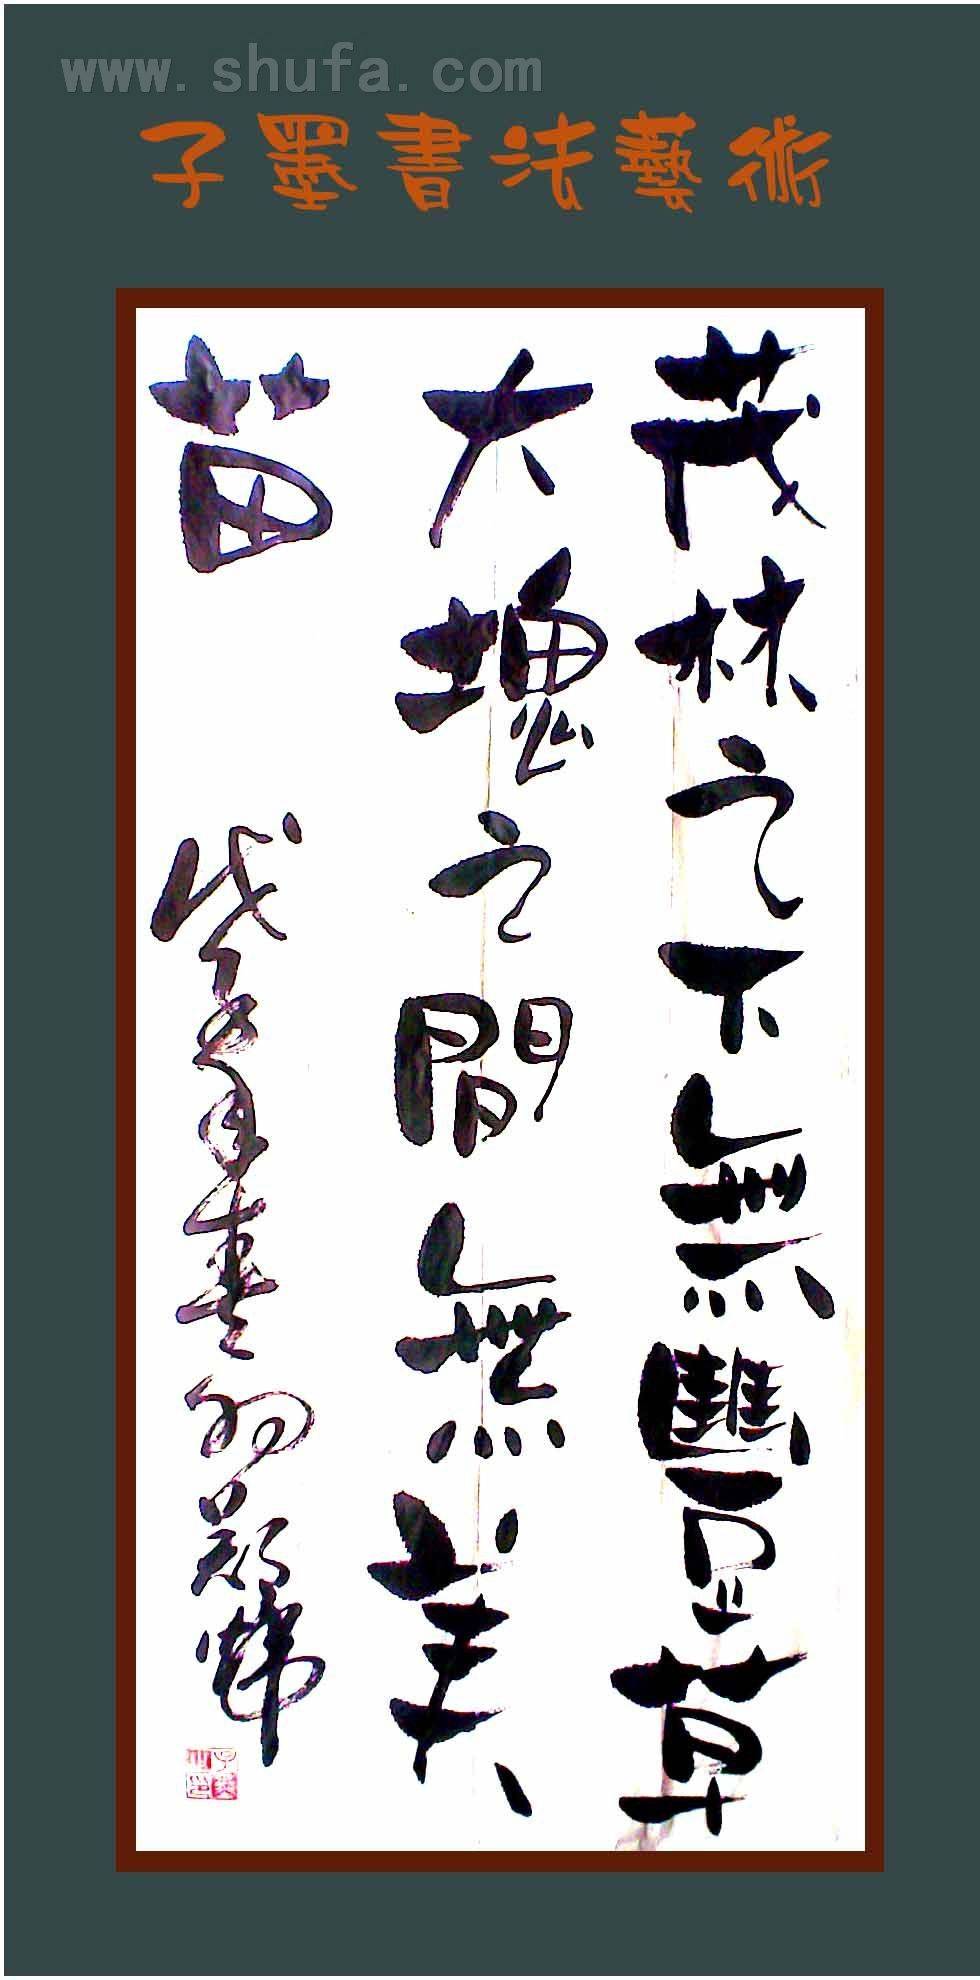 www.shufa.com
子墨書法藝術
茂林之下無豐草
大塊之間無美
苗
年春 初 鄭煒